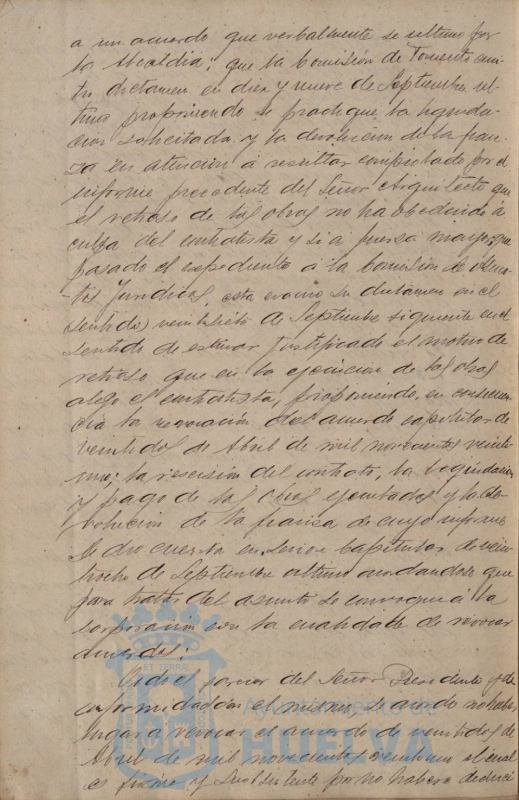 a un acuerdo que verbalmente se ultimo por
la Alcaldia; que la Comisión de Fomento emi-
tió dictamen en diez y nueve de Septiembre úl-
timo proponiendo se practique la liquida-
cion solicitada y la devolucion de la fian-
za en atencion á resultar comprobado por el
informe precedente del Señor Arquitecto que
el retraso de las obras no ha obedecido á
culpa del contratista y si á fuerza mayor; que
pasado el expediente á la Comisión de Asun-
tos Juridicos, esta evacuó su dictamen en el
sentido veintiseis de Septiembre siguiente en el
sentido de estimar justificado el motivo de
retraso que en la ejecicion de las obras
alegó el contratista, proponiendo, en consecuen-
cia la revocación del acuerdo capitular de
veintidos de Abril de mil novecientos veinti-
uno; la rescisión del contrato, la liquidacion
y pago de las obras ejecutadas y la de-
volucion de la fianza de cuyo informe
se dio cuenta en sesion Capitular de vein-
tiocho de Septiembre ultimo acordandose que
para tratar del asunto se convoque á la
corporación con la cualidad de revocar
acuerdos;
Oido el parecer del Señor Presidente y de
conformidad con el mismo se acordó no haber
lugar á revocar el acuerdo de veintidos de
Abril de mil novecientos veintiuno el cual
es firme y subsistente por no haberse deduci
Ayuntamiento de
HUELVA